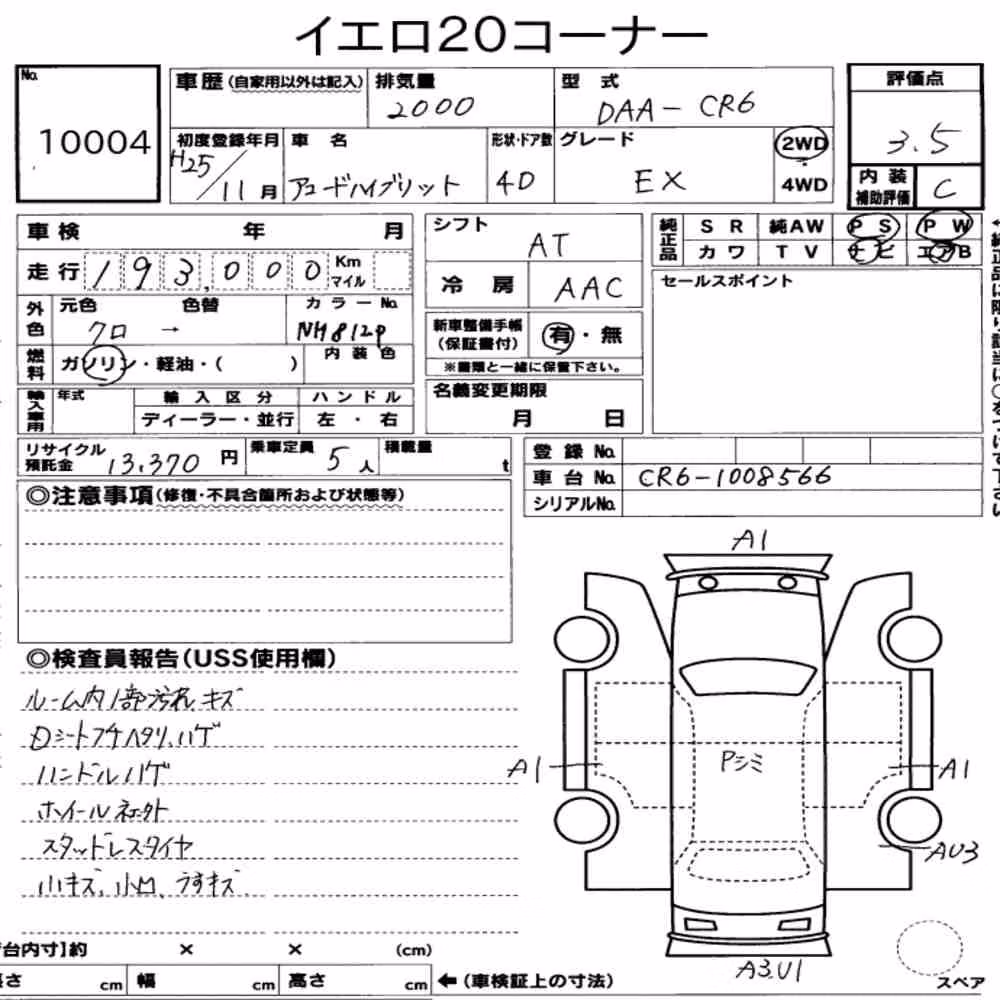 イエロ20コーナー
No.
10004
車歴 (自家用以外は記入)
排気量
2000
型 式
DAA-CR6
評価点
3.5
初度登録年月
H25/11月
車 名
アコードハイブリット
形状・ドア数
4D
グレード
EX
2WD
4WD
内 装
補助評価
C
車 検 年 月
シフト
AT
純正品
S R 純AW P S P W
カ ワ T V ナ ビ エアB
走 行 193,000 Km
マイル
冷 房
AAC
セールスポイント
外色
元色 色替
クロ →
カラー No.
NH812P
新車整備手帳
(保証書付)
有・無
※書類と一緒に保管下さい。
燃料
ガソリン・軽油・( )
内 装 色
名義変更期限
月 日
輸入車用
年式
輸 入 区 分
ディーラー・並行
ハ ン ド ル
左 ・ 右
リサイクル
預託金
13,370 円
乗車定員
5 人
積載量
t
登 録 No.
車 台 No. CR6-1008566
シリアルNo.
◎注意事項(修復・不具合箇所および状態等)
◎検査員報告(USS使用欄)
ルーム内1部汚れ、キズ
Dシートフチヘタリ、ハゲ
ハンドルハゲ
ホイールキズ
スタッドレスタイヤ
小キズ、小凹、うすキズ
A1
A1
Pシミ
A1
AU3
A3.U1
スペア
台内寸】約 × × (cm)
長さ cm 幅 cm 高さ cm ←(車検証上の寸法)